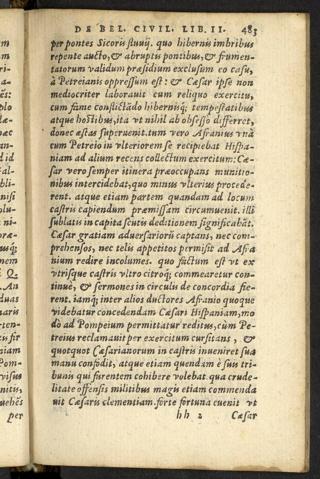 DE BEL. CIVIL. LIB. II. 483
per pontes Sicoris fluuij. quo hibernis imbribus
repente aucto, & abruptis pontibus, & frumen-
tatorum validum præsidium exclusum eo casu,
à Petreianis oppressum est: & Cæsar ipse non
mediocriter laborauit cum reliquo exercitu,
cum fame conflictādo hibernisq; tempestatibus
atque hostibus, ita vt nihil ab obsesso differret,
donec æstas superuenit. tum vero Afranius vnà
cum Petreio in vlteriorem se recipiebat Hispa-
niam ad alium recens collectum exercitum: Cæ-
sar vero semper itinera præoccupans munitio-
nibus intercidebat, quo minus vlterius procede-
rent. atque etiam partem quandam ad locum
castris capiendum præmissam circumuenit. illi
sublatis in capita scutis deditionem significabāt.
Cæsar gratiam aduersarioru captans, nec com-
prehensos, nec telis appetitos permisit ad Afra
nium redire incolumes. quo factum est vt ex
vtrisque castris vltro citroq; commearetur con-
tinuè, & sermones in circulis de concordia fie-
rent. iamq; inter alios ductores Afranio quoque
videbatur concedendam Cæsari Hispaniam, mo
dò ad Pompeium permittatur reditus, cùm Pe-
treius reclamauit per exercitum cursitans, &
quotquot Cæsarianorum in castris inueniret sua
manu confodit, atque etiam quendam è suis tri-
bunis qui furentem cohibere volebat. qua crude-
litate offensis militibus magis etiam commenda
uit Cæsaris clementiam. forte fortuna euenit vt
hh 2 Cæsar
per